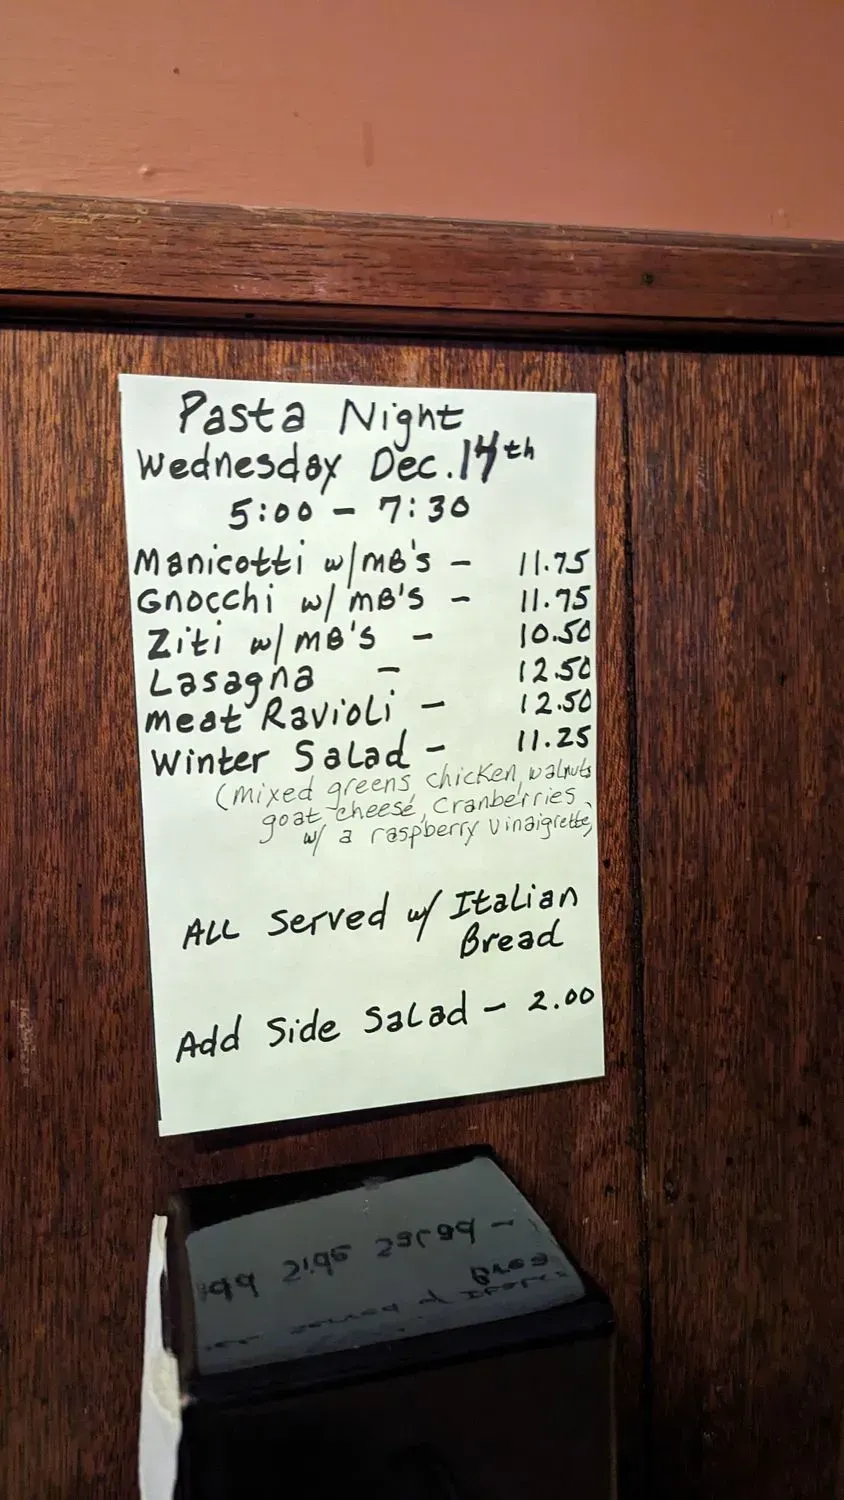 Pasta Night
Wednesday Dec. 14th
5:00 - 7:30
Manicotti w/MB's - 11.75
Gnocchi w/ MB's - 11.75
Ziti w/ MB's - 10.50
Lasagna - 12.50
Meat Ravioli - 12.50
Winter Salad - 11.25
(mixed greens, chicken, walnuts
goat cheese, Cranberries,
w/ a raspberry vinaigrette)
ALL Served w/ Italian
Bread
Add Side Salad - 2.00